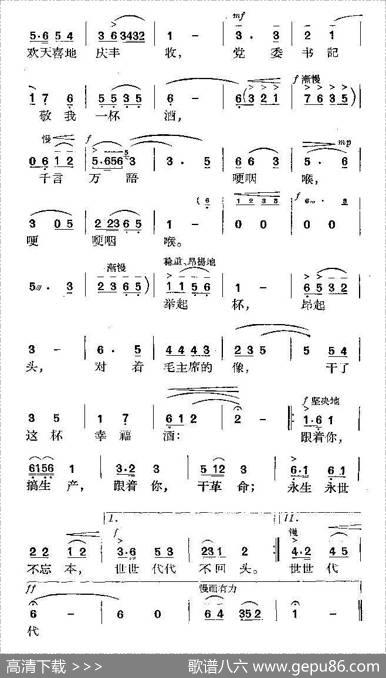 mf
5·6 5 4 | 3 6 3432 | 1 - | 3· 3 | 2 1 |
欢天喜地 庆丰 收， 党 委 书记
f 渐慢
1 7 6 | 5 5 3 5 | 6 - | 6 (3 2 1 | 7 6 3 5) |
敬我 一杯 酒，
慢 f mp
0 6 1 2 | 5·656 3 | 3· 5 | 6 6 3 | 5· 6 |
千言 万语 哽咽 喉，
f
3 0 5 | 2 2365 | 1 - | 0 0 | 0 0 |
哽 哽咽 喉。
渐慢 稳重、昂扬地
5 · 3 | 2 3 6 5) | 1 1 5 6 | 1 - | 6 5 3 2 |
举起 杯， 昂起
3 - | 6· 5 | 4 4 4 3 | 2 3 5 | 5 5 4 |
头， 对 着 毛主席的 像， 干了
f 坚决地
3 5 | 1 7 | 6 1 2 | 2 - |: 1·6 1 |
这杯 幸福 酒： 跟着你，
6156 1 | 3·2 3 | 5 12 3 | 6·1 6 1 |
搞生 产， 跟着你， 干革 命； 永生 永世
1. II.
f 慢
2 2 1 2 | 3·6 5 3 | 231 2 :| 4·2 4 5 |
不忘 本， 世世 代代 不回 头。 世世代
ff 慢而有力
6 - | 6 0 | 6 4 352 | 1 - ‖
代
高清下载 >>> 歌谱八六 www.gepu86.com